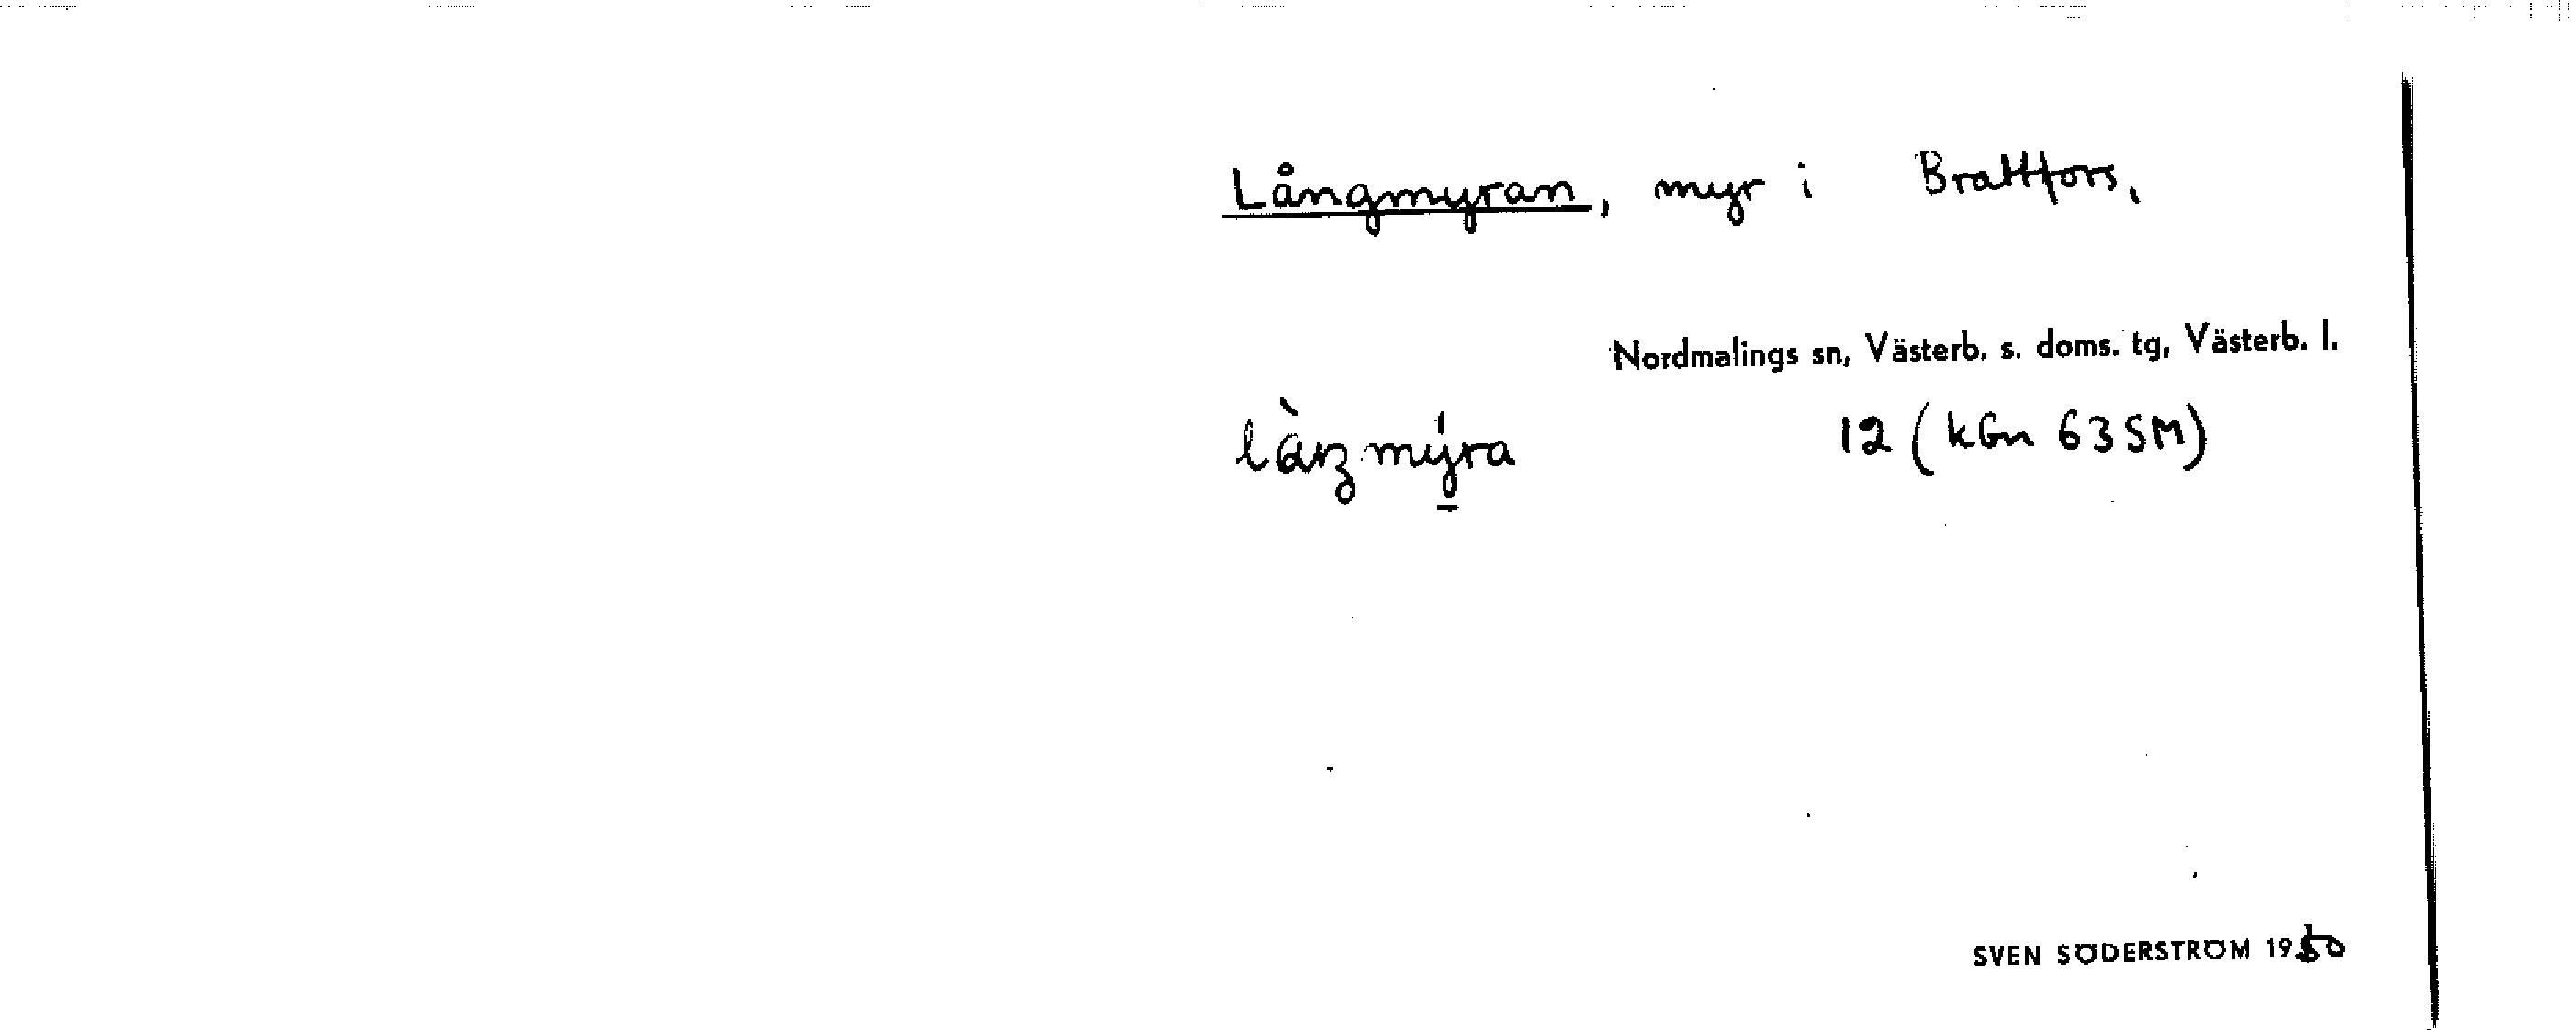 Långmyran, myr i Brattfors.
Nordmalings sn, Västerb. s. doms. tg, Västerb. l.
12 (kGn 63 SM)
SVEN SÖDERSTRÖM 1950